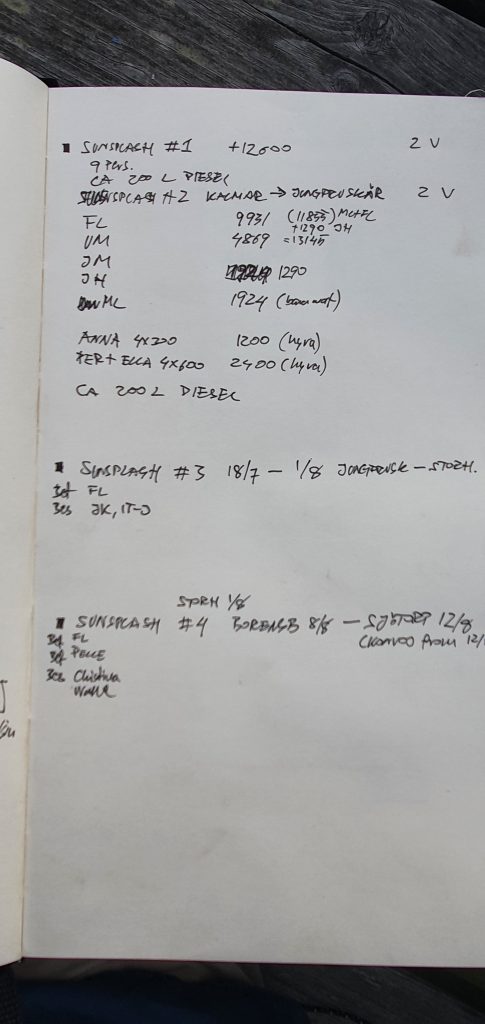 SUNSPLASH #1 +12600 2 V
9 PERS.
CA 200 L DIESEL
SUNSPLASH #2 KALMAR → JUNGFRUSKÄR 2 V
FL 9931 (11855) ML+FL
+1290 JH
UM 4869 =13145
JM
JH 1290
ML 1924
ANNA 4X300 1200 (hyra)
PER + ELLA 4X600 2400 (hyra)
CA 200 L DIESEL
SUNSPLASH #3 18/7 – 1/8 JUNGFRUSK – STORH.
Bef FL
Bes JK, IT-J
STORH 1/8
SUNSPLASH #4 BORENSB 8/8 – SJÖTORP 12/8
Bef FL (KONVOJ from 12/
Bef PELLE
Bes Christina